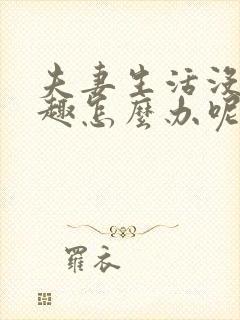 夫妻生活没
趣怎麼办呢
羅衣